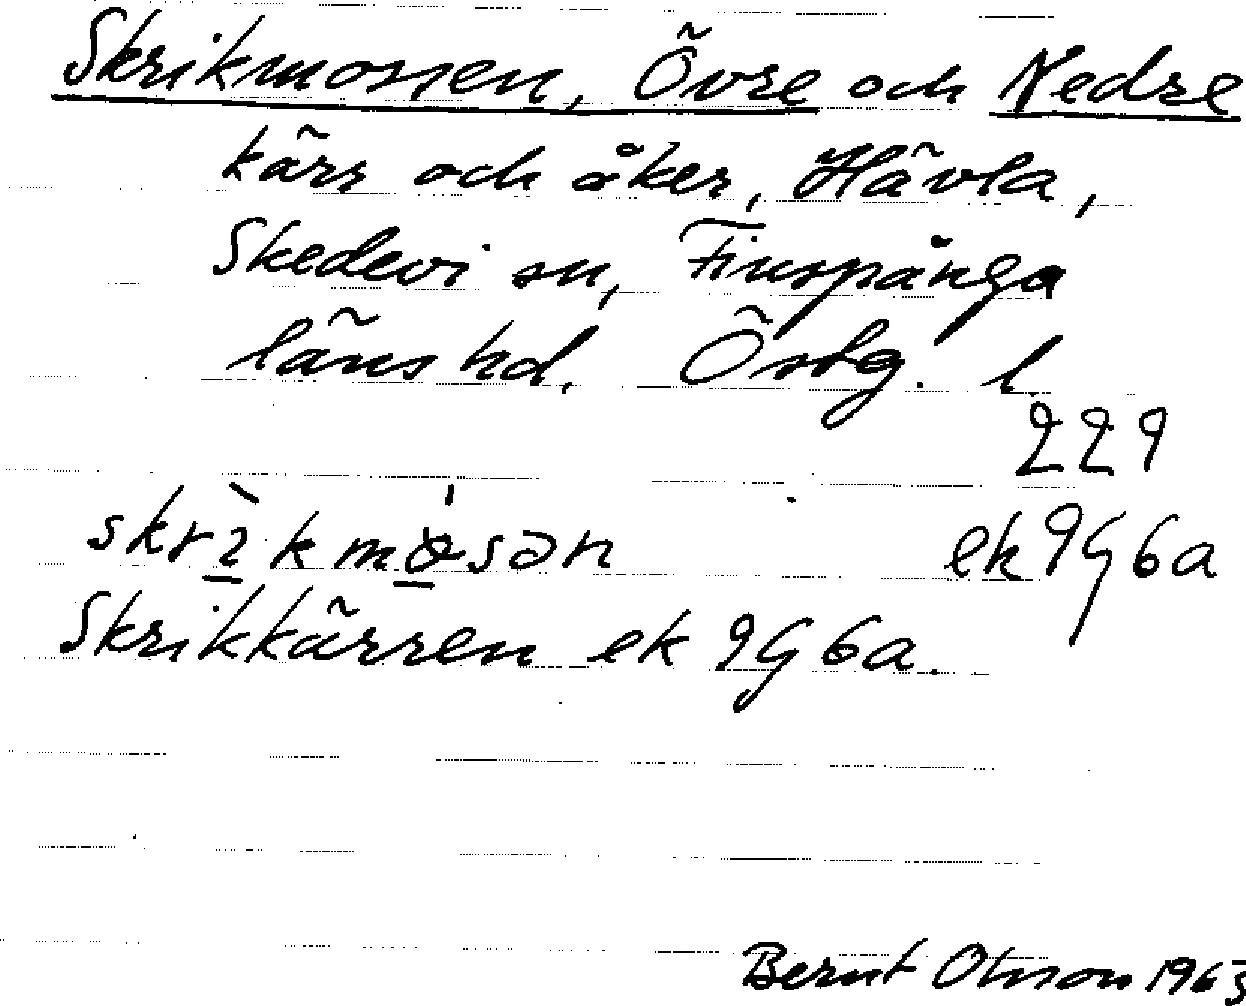 Skrikmossen, Övre och Nedre
kärr och åker, Hävla,
Skedevi sn, Finspånga
läns hd. Östg. l
229
ek 9G6a
Skrikkärren ek 9G6a.
Bernt Olsson 1963